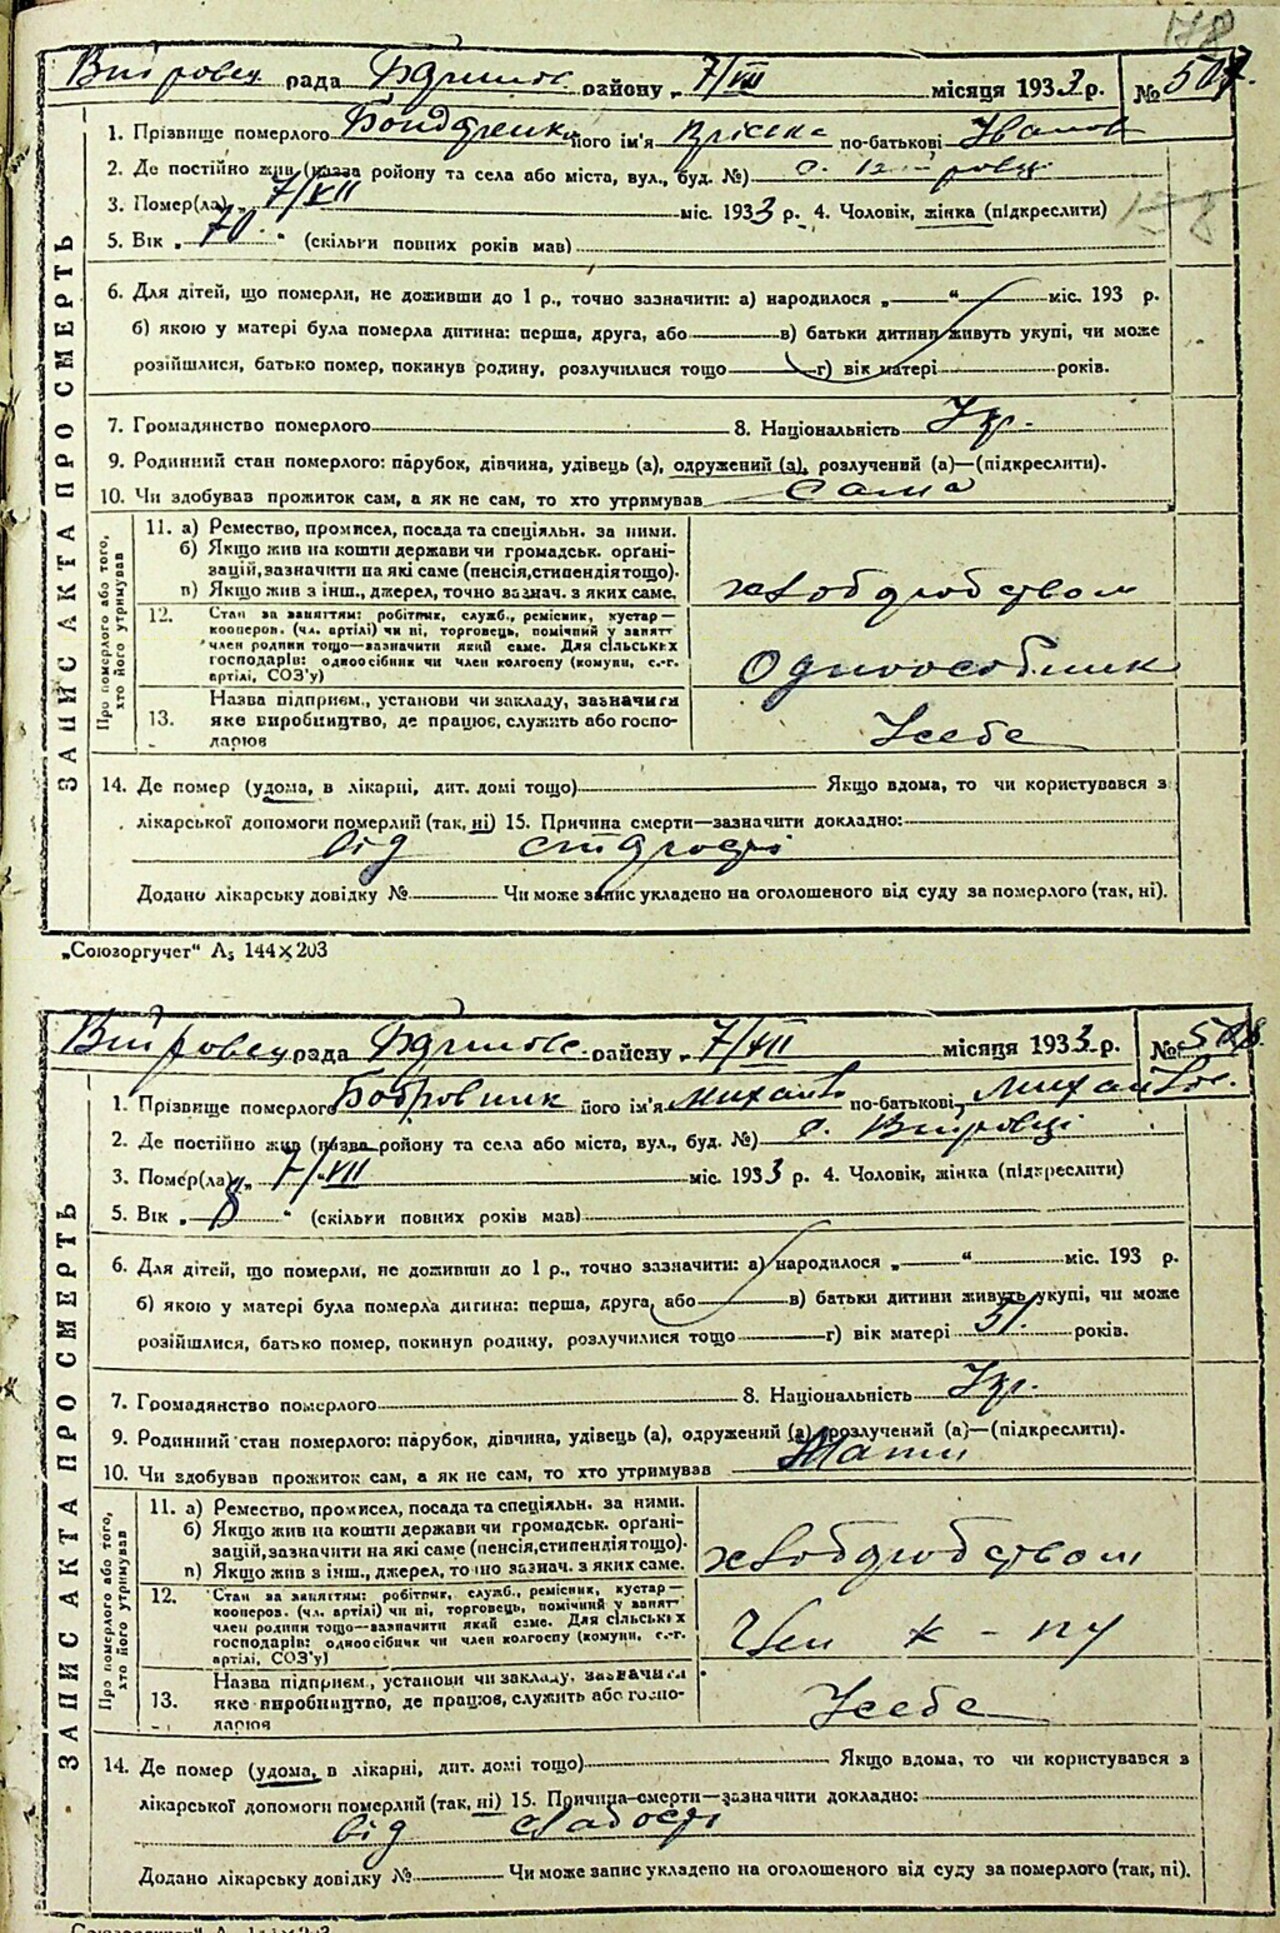 178
рада району „ 7/VII місяця 1933 р. № 507.
1. Прізвище померлого Бондаренко його ім'я по-батькові Іванов
2. Де постійно жив (назва ройону та села або міста, вул., буд. №) с.
3. Помер(ла) „ 7/VII міс. 1933 р. 4. Чоловік, жінка (підкреслити)
178
5. Вік „ 70. “ (скільки повних років мав)
6. Для дітей, що померли, не доживши до 1 р., точно зазначити: а) народилося „ “ міс. 193 р.
б) якою у матері була померла дитина: перша, друга, або в) батьки дитини живуть укупі, чи може
розійшлися, батько помер, покинув родину, розлучилися тощо г) вік матері років.
7. Громадянство померлого 8. Національність Укр.
9. Родинний стан померлого: парубок, дівчина, удівець (а), одружений (а), розлучений (а)—(підкреслити).
10. Чи здобував прожиток сам, а як не сам, то хто утримував сама
ЗАПИС АКТА ПРО СМЕРТЬ
Про померлого або того,
хто його утримував
11. а) Ремество, промисел, посада та спеціяльн. за ними.
б) Якщо жив на кошти держави чи громадськ. органі-
зацій, зазначити на які саме (пенсія, стипендія тощо).
в) Якщо жив з інш., джерел, точно зазнач. з яких саме.
хлібдробством
12. Стан за заняттям: робітник, служб., ремісник, кустар—
кооперов. (чл. артілі) чи ні, торговець, помічний у занятт
член родини тощо—зазначити який саме. Для сільських
господарів: одноосібник чи член колгоспу (комуни, с.-г.
артілі, СОЗ'у)
Одноособник
Назва підприєм., установи чи закладу, зазначити
13. яке виробництво, де працює, служить або госпо-
дарює
У себе
14. Де помер (удома, в лікарні, дит. домі тощо) Якщо вдома, то чи користувався з
лікарської допомоги померлий (так, ні) 15. Причина смерти—зазначити докладно:
від старості
Додано лікарську довідку № Чи може запис укладено на оголошеного від суду за померлого (так, ні).
„Союзоргучет“ А5 144×203
рада району „ 7/VII місяця 1933 р. № 508.
1. Прізвище померлого Бобровник його ім'я Михайло по-батькові Михайлов.
2. Де постійно жив (назва ройону та села або міста, вул., буд. №) с.
3. Помер(ла) „ 7/VII міс. 1933 р. 4. Чоловік, жінка (підкреслити)
5. Вік „ 8 “ (скільки повних років мав)
6. Для дітей, що померли, не доживши до 1 р., точно зазначити: а) народилося „ “ міс. 193 р.
б) якою у матері була померла дитина: перша, друга, або в) батьки дитини живуть укупі, чи може
розійшлися, батько помер, покинув родину, розлучилися тощо г) вік матері 51. років.
7. Громадянство померлого 8. Національність Укр.
9. Родинний стан померлого: парубок, дівчина, удівець (а), одружений (а), розлучений (а)—(підкреслити).
10. Чи здобував прожиток сам, а як не сам, то хто утримував Мати
ЗАПИС АКТА ПРО СМЕРТЬ
Про померлого або того,
хто його утримував
11. а) Ремество, промисел, посада та спеціяльн. за ними.
б) Якщо жив на кошти держави чи громадськ. органі-
зацій, зазначити на які саме (пенсія, стипендія тощо).
в) Якщо жив з інш., джерел, точно зазнач. з яких саме.
хлібдробством
12. Стан за заняттям: робітник, служб., ремісник, кустар—
кооперов. (чл. артілі) чи ні, торговець, помічний у занятт
член родини тощо—зазначити який саме. Для сільських
господарів: одноосібник чи член колгоспу (комуни, с.-г.
артілі, СОЗ'у)
Член к-пу
Назва підприєм., установи чи закладу, зазначити
13. яке виробництво, де працює, служить або госпо-
дарює
У себе
14. Де помер (удома, в лікарні, дит. домі тощо) Якщо вдома, то чи користувався з
лікарської допомоги померлий (так, ні) 15. Причина смерти—зазначити докладно:
від слабості
Додано лікарську довідку № Чи може запис укладено на оголошеного від суду за померлого (так, ні).